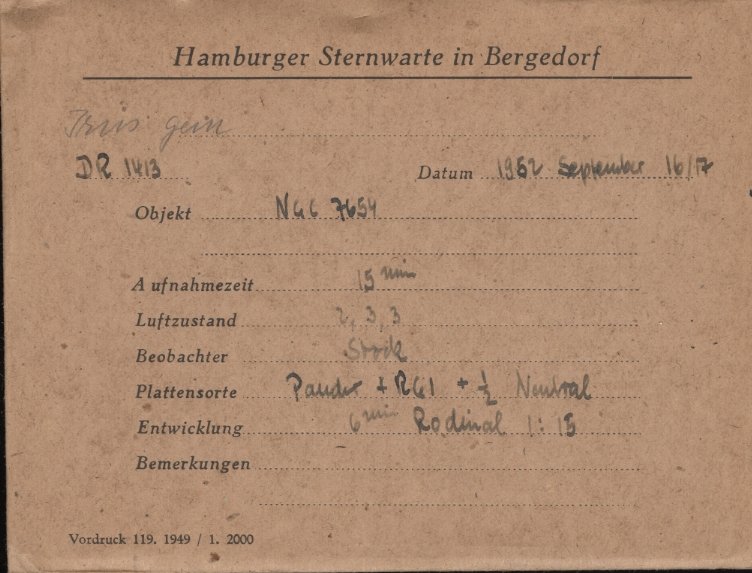 Hamburger Sternwarte in Bergedorf
gem
DR 1413 Datum 1952 September 16/17
Objekt NGC 7654
Aufnahmezeit 15 min
Luftzustand 2, 3, 3
Beobachter Stock
Plattensorte + RG1 + ½ Neutral
Entwicklung 6 min Rodinal 1:15
Bemerkungen
Vordruck 119. 1949 / 1. 2000